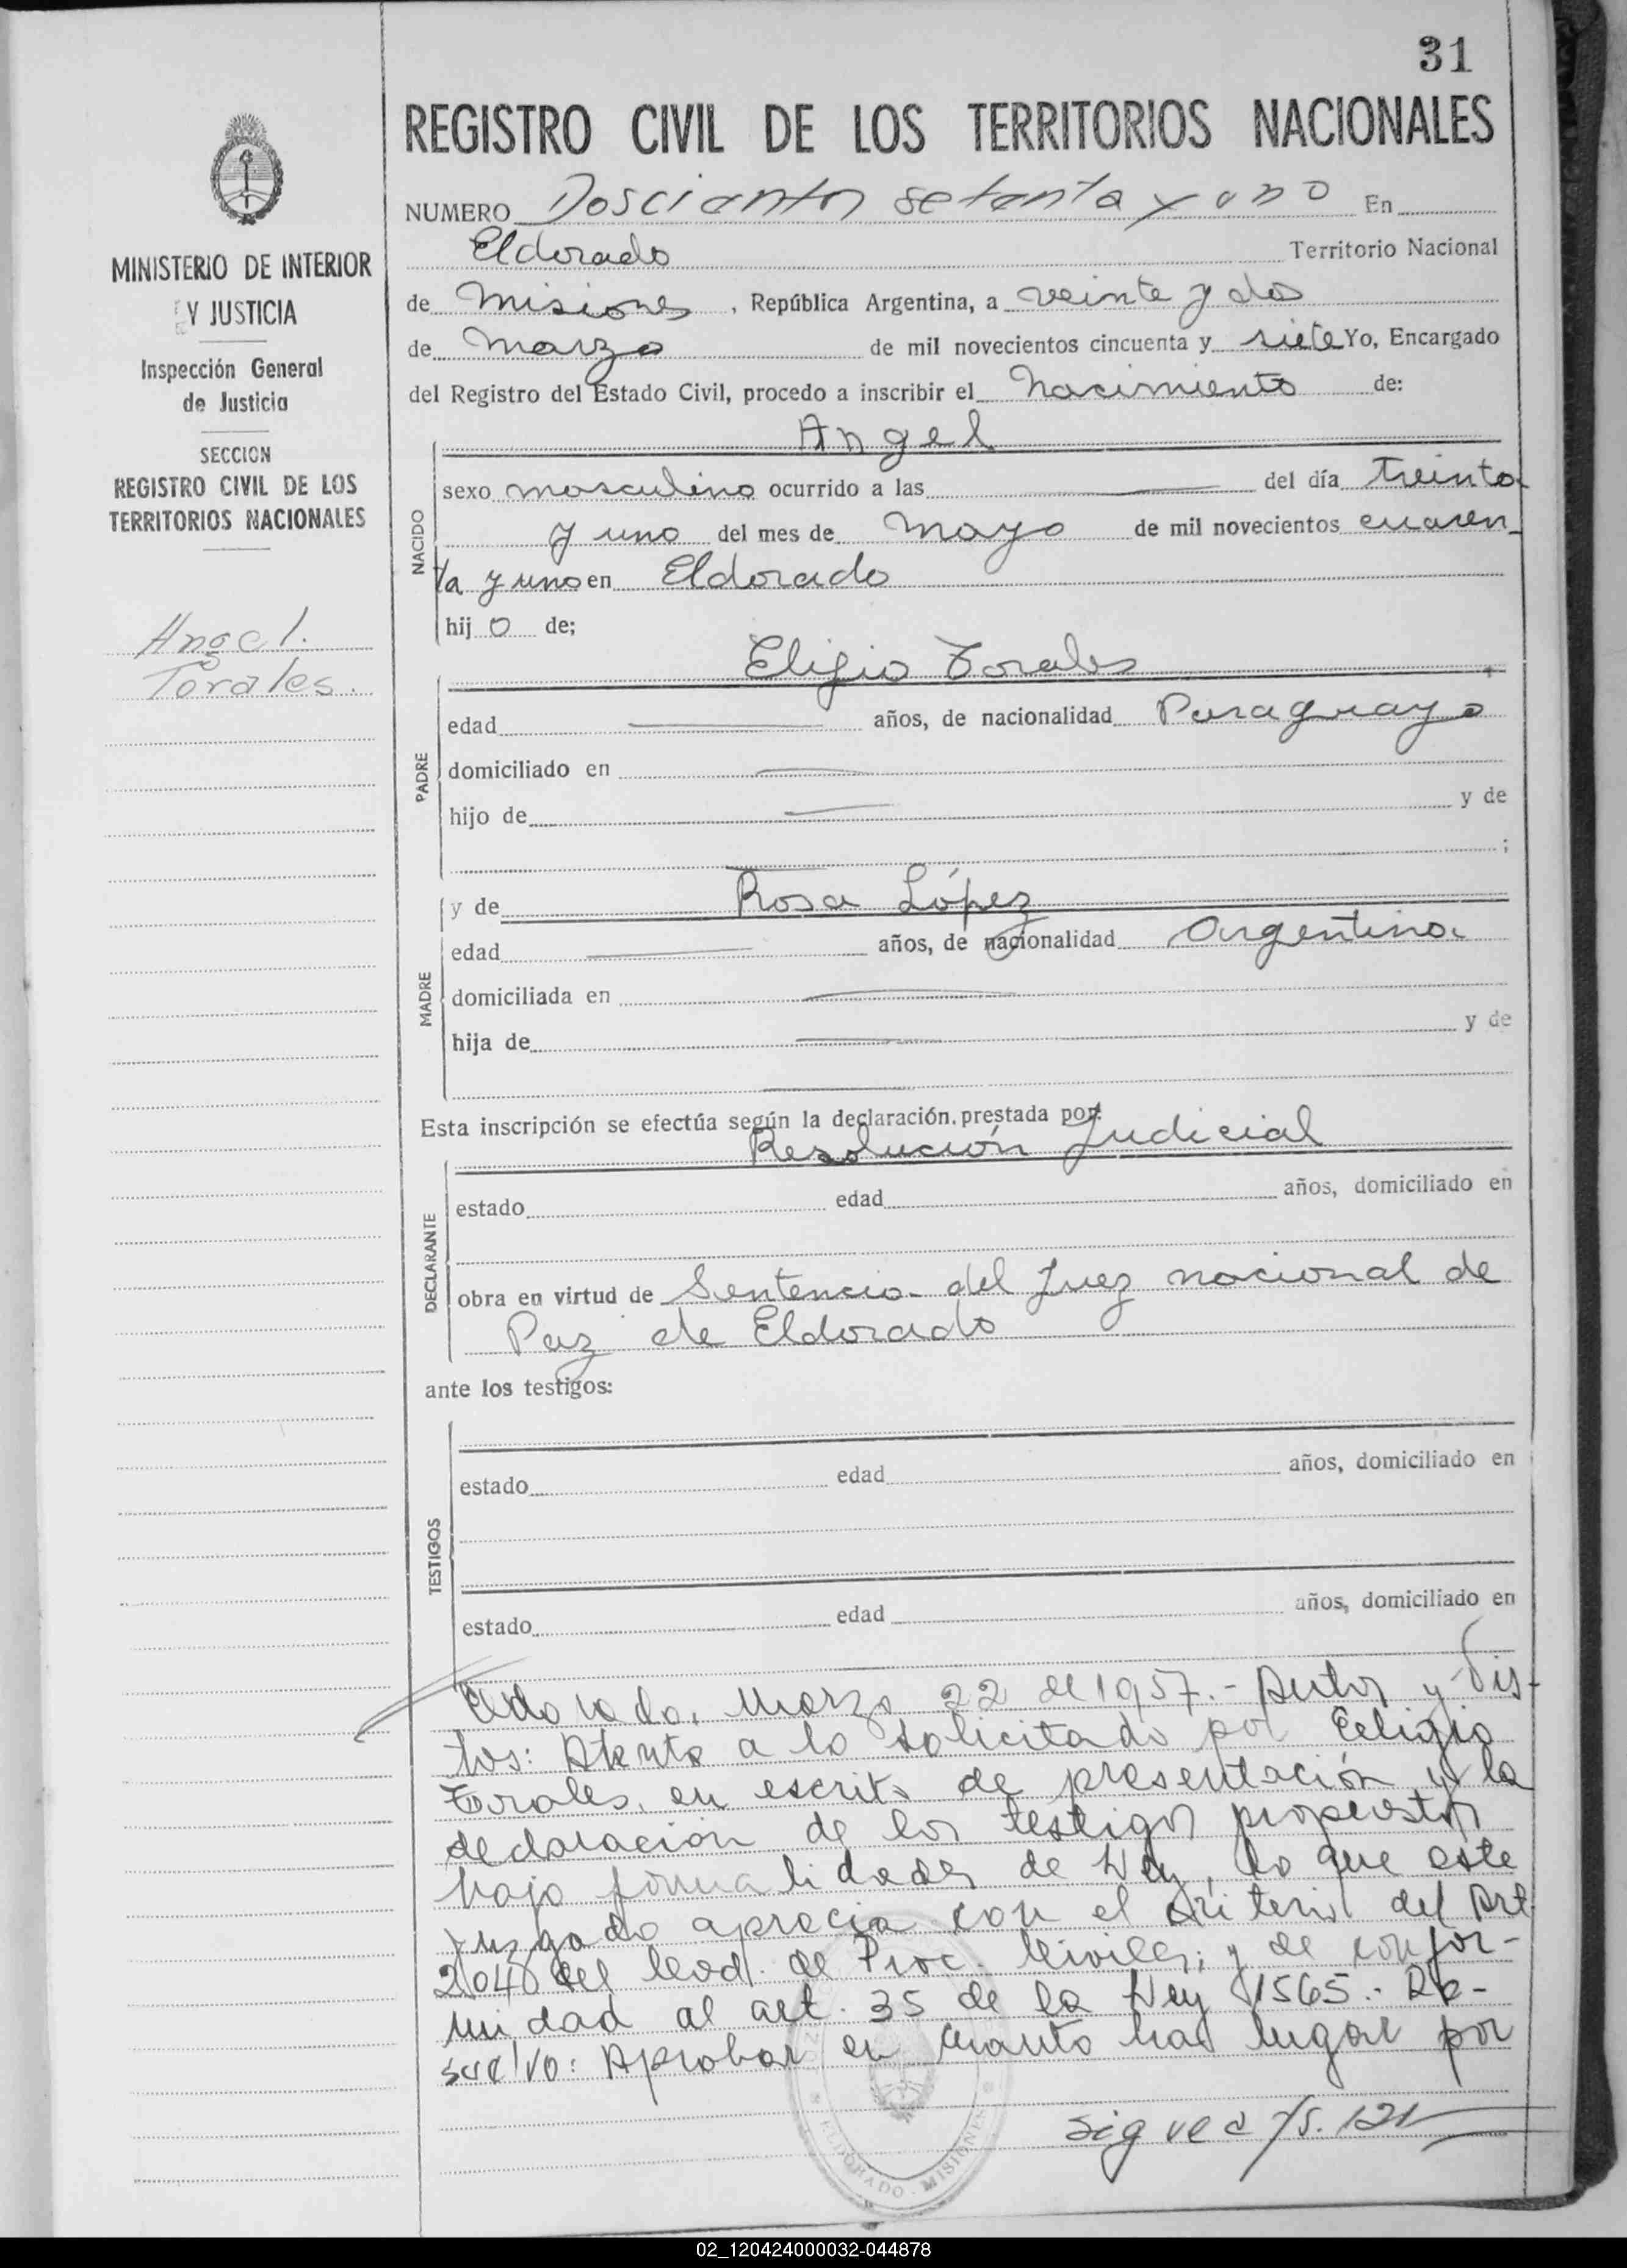 31
REGISTRO CIVIL DE LOS TERRITORIOS NACIONALES
MINISTERIO DE INTERIOR
Y JUSTICIA
Inspección General
de Justicia
SECCION
REGISTRO CIVIL DE LOS
TERRITORIOS NACIONALES
Angel.
Torales.
NUMERO Doscientos setenta y uno En
Eldorado Territorio Nacional
de Misiones, República Argentina, a veinte y dos
de Marzo de mil novecientos cincuenta y siete Yo, Encargado
del Registro del Estado Civil, procedo a inscribir el Nacimiento de:
NACIDO
Angel
sexo masculino ocurrido a las del día treinta
y uno del mes de Mayo de mil novecientos cuaren-
ta y uno en Eldorado
hijo de;
PADRE
Eligio Torales
edad años, de nacionalidad Paraguayo
domiciliado en
hijo de y de
;
MADRE
y de Rosa López
edad años, de nacionalidad Argentina
domiciliada en
hija de y de
Esta inscripción se efectúa según la declaración prestada por:
DECLARANTE
Resolución Judicial
estado edad años, domiciliado en
obra en virtud de Sentencia del Juez nacional de
Paz de Eldorado
ante los testigos:
TESTIGOS
estado edad años, domiciliado en
estado edad años, domiciliado en
Eldorado, Marzo 22 de 1957.- Autos y Vis-
tos: Atento a lo solicitado por Eeligio
Torales, en escrito de presentación y la
declaración de los testigos propuestos
bajo formalidades de Ley, lo que este
Juzgado aprecia con el criterio del Art
204 del Cod. de Proc. Civiles; y de confor-
midad al art. 35 de la Ley 1565.- Re-
suelvo: Aprobar en cuanto has lugar por
sigue a fs. 121
ELDORADO - MISIONES
02_120424000032-044878